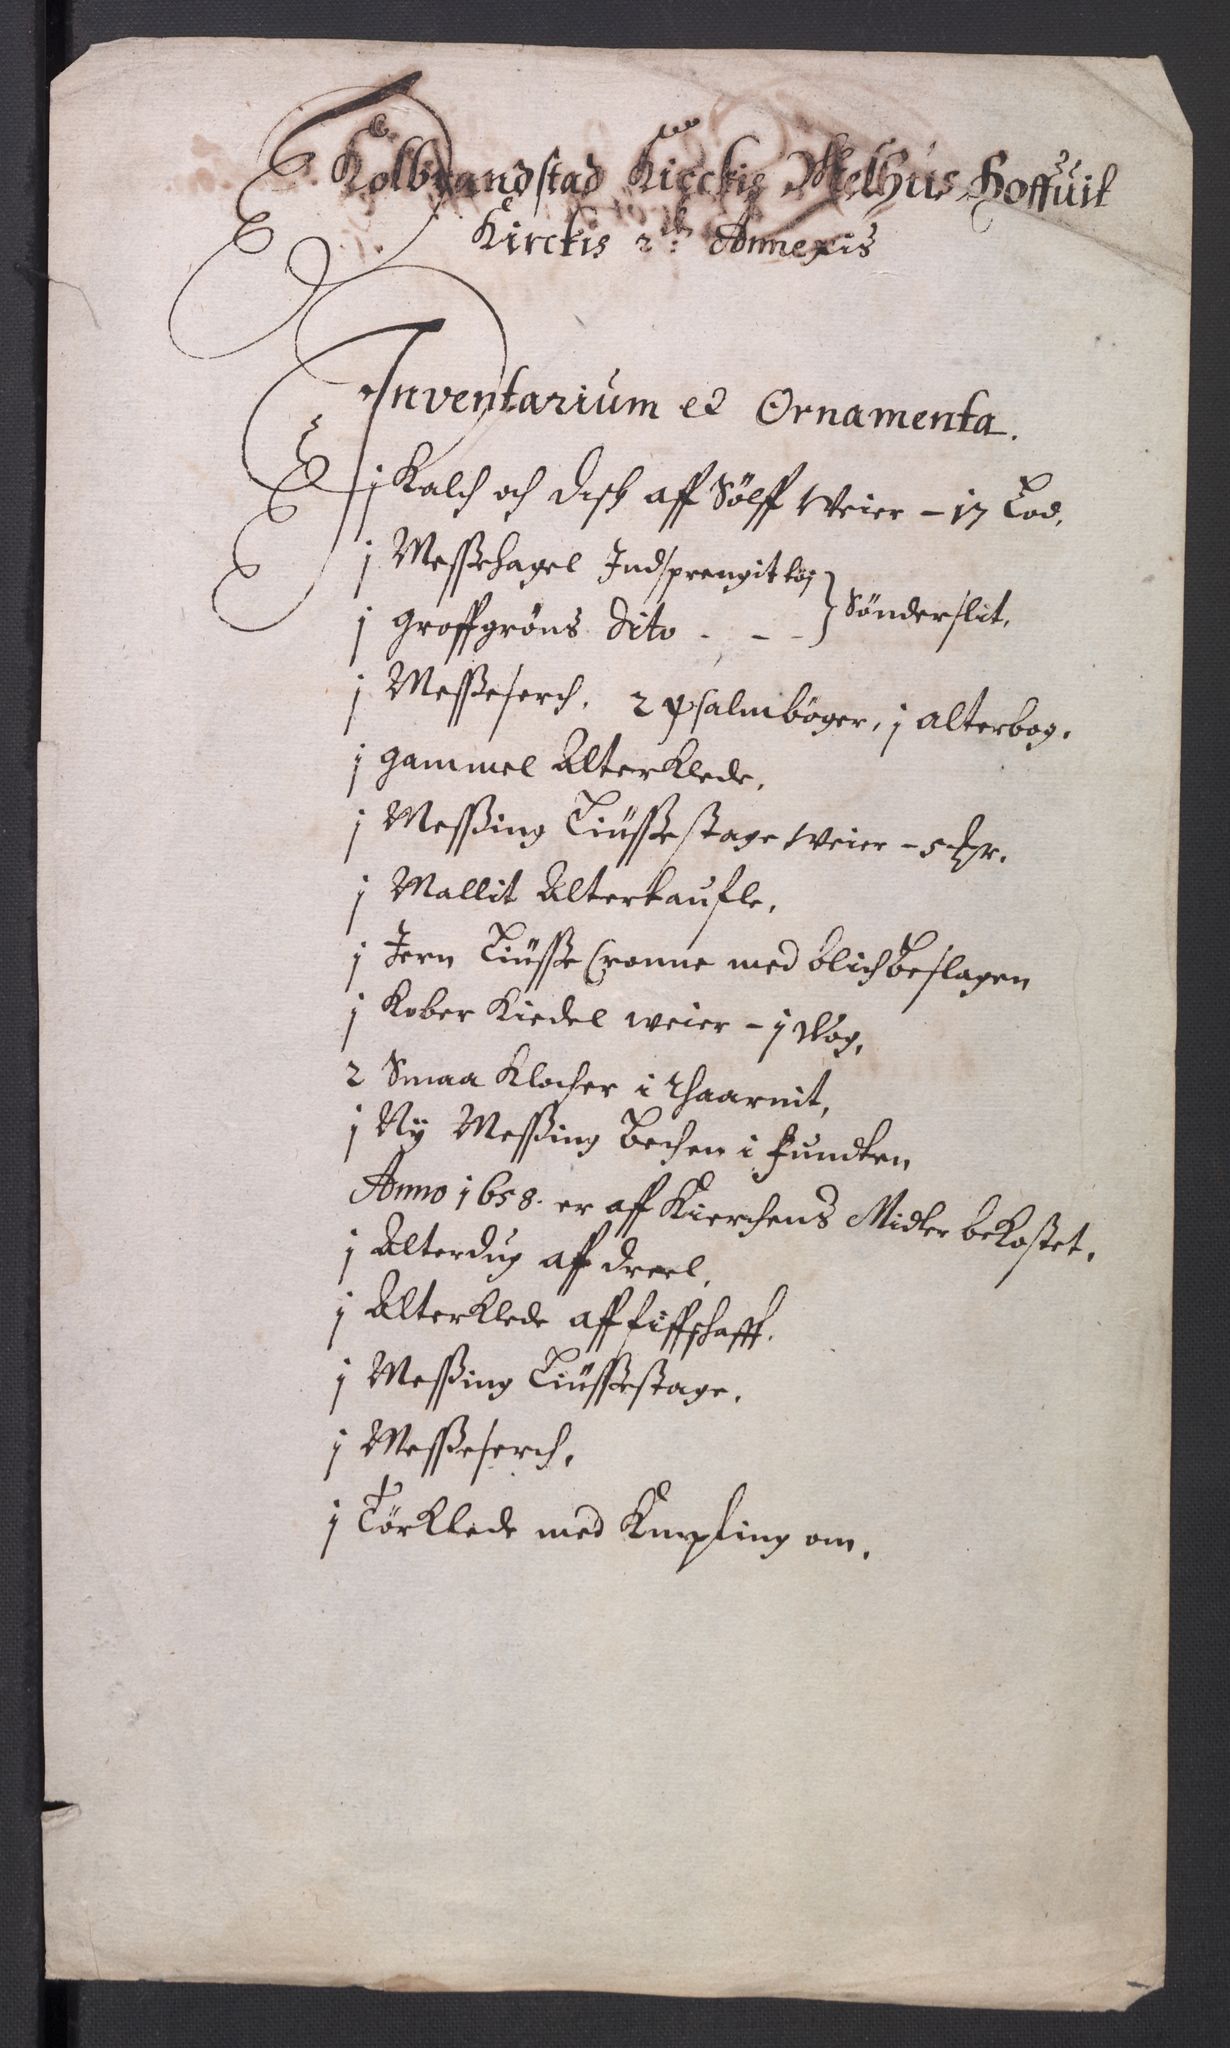 Kolbrandstad Kirckis Melhus Hoffuit
Kirckis 2de Annexis
Inventarium et Ornamenta.
j Kalch och disk aff Sølff Weier - 17 Lod.
j Messehagel Indsprengit tøj
j groffgrøns dito - - - } Sønderslit.
j Messeserch. 2 Psalmbøger, j alterbog.
j gammel Alterklede.
j Messing Liusse stage weier - 5
j Mallit Altertaufle.
j Jern Liusse Cronne med blich beslagen
j Kober Kiedel weier - j Wog.
2 Smaa Klocher i thaarnit,
j Ny Messing Bechen i Funckten
Anno 1658. er aff Kierchens Midler bekostet.
j Alterdug aff dreel.
j Alterklede aff fiffschafft.
j Messing Liussestage.
j Messeserch.
j Tørklede med Knipling om.